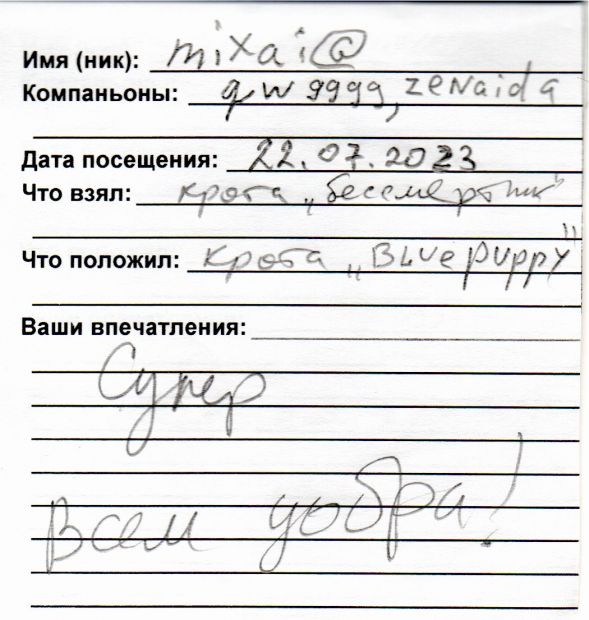 Имя (ник): mixai@
Компаньоны: qw9999, zeNaida
Дата посещения: 22.07.2023
Что взял: крота „Бессмертник"
Что положил: крота „BLUE PUPPY"
Ваши впечатления:
Супер
Всем добра!